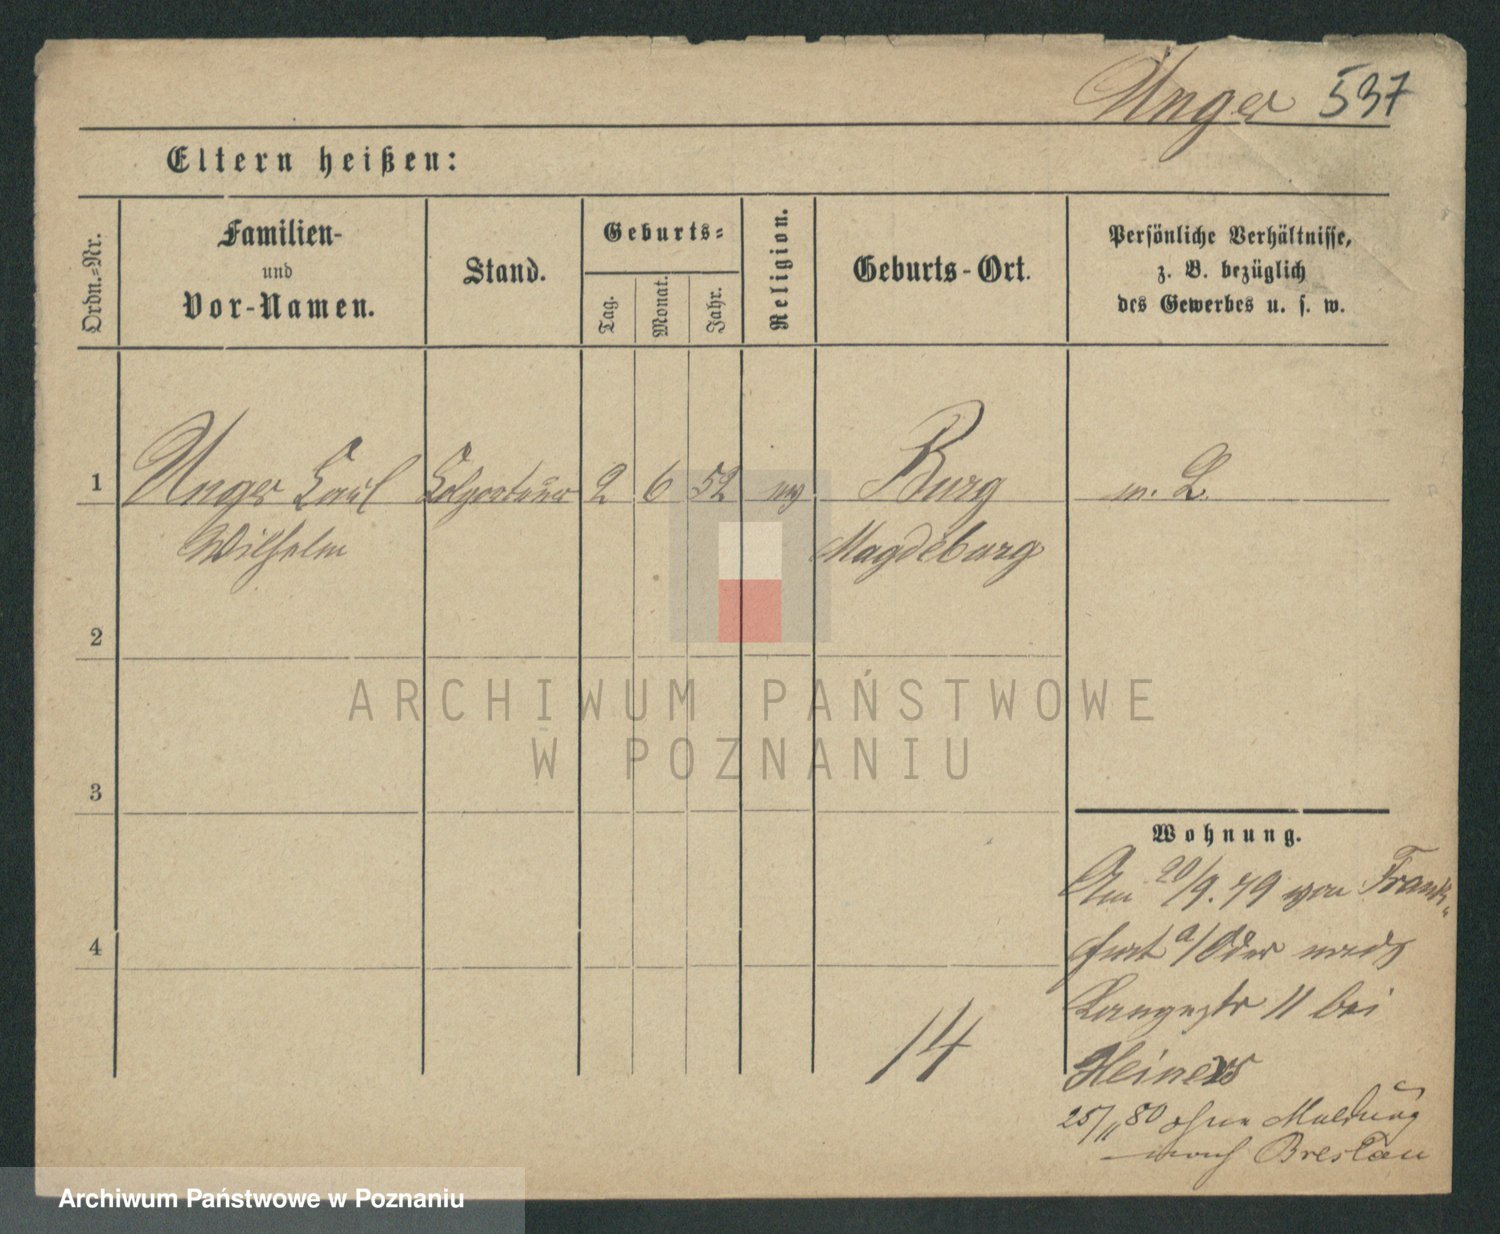 Unger 537
Eltern heißen:
Ordn.-Nr.
Familien-
und
Vor-Namen.
Stand.
Geburts-
Tag.
Monat.
Jahr.
Religion.
Geburts-Ort.
Persönliche Verhältnisse,
z. B. bezüglich
des Gewerbes u. s. w.
1 Unger Carl Colporteur 2 6 52 ev Burg m. L.
Wilhelm Magdeburg
2
3
4
Wohnung.
Am 20/9. 79 von Frank-
furt a/Oder nach
Langestr 11 bei
Heiners
25/11 80 ohne Meldung
nach Breslau
14
ARCHIWUM PAŃSTWOWE
W POZNANIU
Archiwum Państwowe w Poznaniu